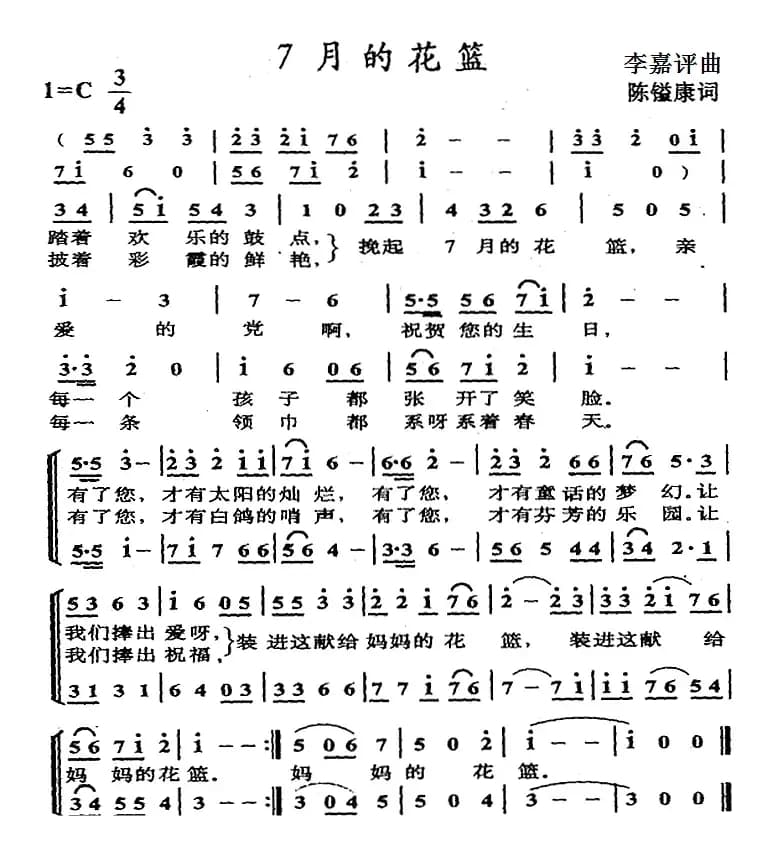 7 月 的 花 篮
李嘉评曲
1=C 3/4
陈镒康词
( 5 5 3 3 | 2 3 2 1 7 6 | 2 - - | 3 3 2 0 1 |
7 1 6 0 | 5 6 7 1 2 | 1 - - | 1 0 )
3 4 | 5 1 5 4 3 | 1 0 2 3 | 4 3 2 6 | 5 0 5 |
踏着 欢 乐的 鼓 点, 挽起 7 月的 花 篮, 亲
披着 彩 霞的 鲜 艳,
1 - 3 | 7 - 6 | 5·5 5 6 7 1 | 2 - - |
爱 的 党 啊, 祝贺 您的 生 日,
3·3 2 0 | 1 6 0 6 | 5 6 7 1 2 | 1 - - |
每一 个 孩 子 都 张 开了 笑 脸.
每一 条 领 巾 都 系呀 系着 春 天.
5·5 3 - | 2 3 2 1 1 | 7 1 6 - | 6·6 2 - | 2 3 2 6 6 | 7 6 5·3 |
有了 您, 才有 太 阳的 灿 烂, 有了 您, 才有 童 话的 梦 幻.让
有了 您, 才有 白 鸽的 哨 声, 有了 您, 才有 芬 芳的 乐 园.让
5·5 1 - | 7 1 7 6 6 | 5 6 4 - | 3·3 6 - | 5 6 5 4 4 | 3 4 2·1 |
5 3 6 3 | 1 6 0 5 | 5 5 3 3 | 2 2 1 7 6 | 2 - 2 3 | 3 3 2 1 7 6 |
我们 捧出 爱 呀, 装 进这 献 给 妈 妈 的 花 篮, 装 进这 献 给
我们 捧出 祝 福,
3 1 3 1 | 6 4 0 3 | 3 3 6 6 | 7 7 1 7 6 | 7 - 7 1 | 1 1 7 6 5 4 |
5 6 7 1 2 | 1 - - :‖ 5 0 6 7 | 5 0 2 | 1 - - | 1 0 0 ‖
妈 妈的 花 篮. 妈 妈 的 花 篮.
3 4 5 5 4 | 3 - - :‖ 3 0 4 5 | 5 0 4 | 3 - - | 3 0 0 ‖